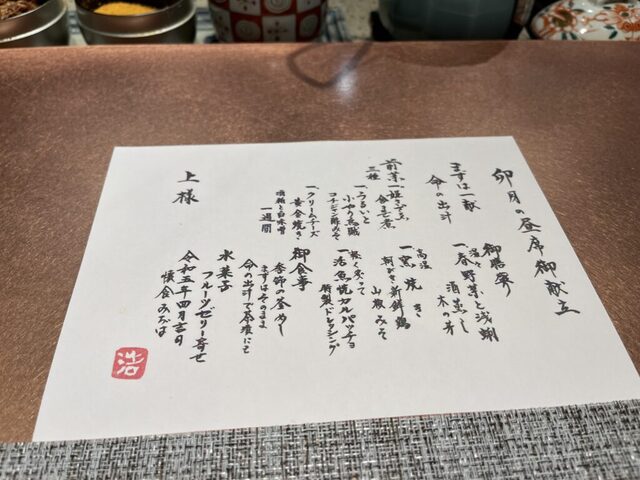 卯月の昼席御献立
まずは一献
命の出汁
前菜
三種
一、うるいと
小やり烏賊
コチジャン酢みそ
一、クリームチーズ
黄金焼き
一週間
御膳菜
一、春野菜と浅蜊
酒蒸し
木の芽
高温
一、窯焼き
朝びき新鮮鶏
山椒みそ
軽く炙って
一、活魚塊カルパッチョ
特製ドレッシング
御食事
季節の釜めし
まずはそのまま
命の出汁で茶漬にて
水菓子
フルーツゼリー寄せ
令和五年四月吉日
懐食みちば
上様